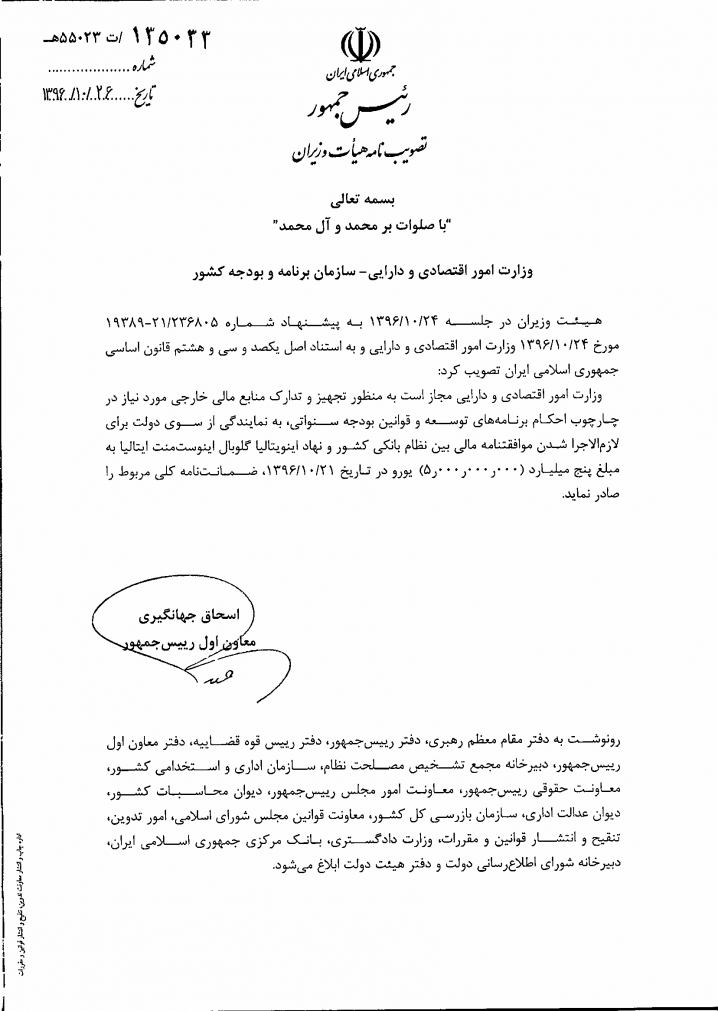 ۱۳۵۰۳۳ /ت ۵۵۰۲۳هـ
شماره ....................
تاریخ.....۱۳۹۶/۱۰/۲۶
جمهوری اسلامی ایران
رئیس جمهور
تصویب نامه هیأت وزیران
بسمه تعالی
"با صلوات بر محمد و آل محمد"
وزارت امور اقتصادی و دارایی– سازمان برنامه و بودجه کشور
هیئت وزیران در جلسه ۱۳۹۶/۱۰/۲۴ به پیشنهاد شماره ۲۱/۲۳۶۸۰۵–۱۹۳۸۹
مورخ ۱۳۹۶/۱۰/۲۴ وزارت امور اقتصادی و دارایی و به استناد اصل یکصد و سی و هشتم قانون اساسی
جمهوری اسلامی ایران تصویب کرد:
وزارت امور اقتصادی و دارایی مجاز است به منظور تجهیز و تدارک منابع مالی خارجی مورد نیاز در
چارچوب احکام برنامه‌های توسعه و قوانین بودجه سنواتی، به نمایندگی از سوی دولت برای
لازم‌الاجرا شدن موافقتنامه مالی بین نظام بانکی کشور و نهاد اینویتالیا گلوبال اینوست‌منت ایتالیا به
مبلغ پنج میلیارد (۵ر۰۰۰ر۰۰۰ر۰۰۰) یورو در تاریخ ۱۳۹۶/۱۰/۲۱، ضمانت‌نامه کلی مربوط را
صادر نماید.
اسحاق جهانگیری
معاون اول رییس‌جمهور
رونوشت به دفتر مقام معظم رهبری، دفتر رییس‌جمهور، دفتر رییس قوه قضاییه، دفتر معاون اول
رییس‌جمهور، دبیرخانه مجمع تشخیص مصلحت نظام، سازمان اداری و استخدامی کشور،
معاونت حقوقی رییس‌جمهور، معاونت امور مجلس رییس‌جمهور، دیوان محاسبات کشور،
دیوان عدالت اداری، سازمان بازرسی کل کشور، معاونت قوانین مجلس شورای اسلامی، امور تدوین،
تنقیح و انتشار قوانین و مقررات، وزارت دادگستری، بانک مرکزی جمهوری اسلامی ایران،
دبیرخانه شورای اطلاع‌رسانی دولت و دفتر هیئت دولت ابلاغ می‌شود.
اداره چاپ و انتشار معاونت تدوین، تنقیح و انتشار قوانین و مقررات